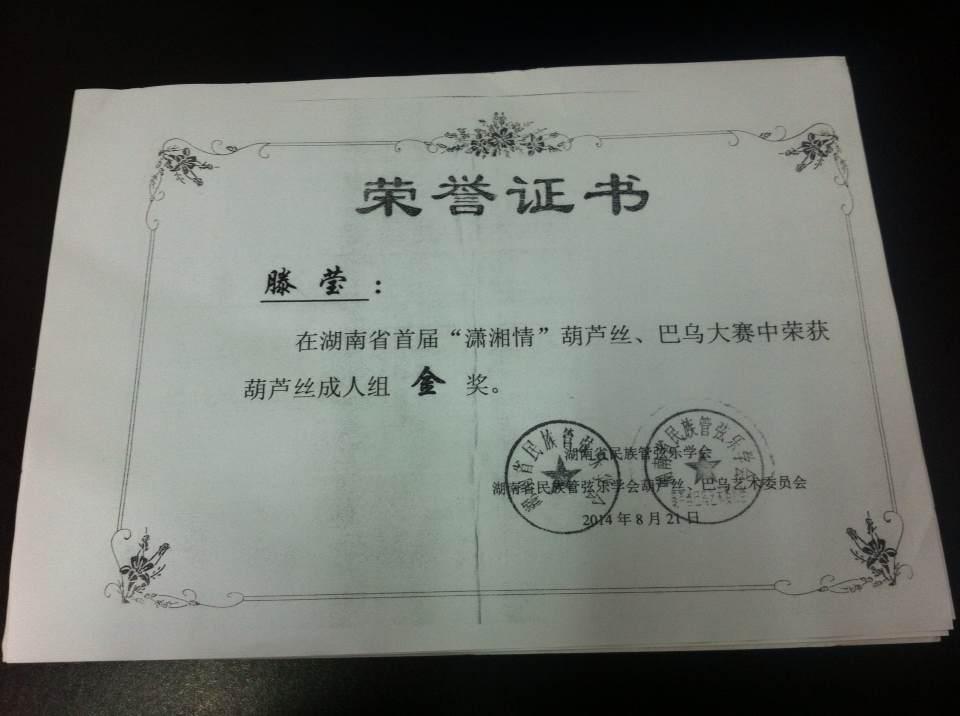 荣誉证书
滕 莹：
在湖南省首届“潇湘情”葫芦丝、巴乌大赛中荣获
葫芦丝成人组 金 奖。
湖南省民族管弦乐学会
湖南省民族管弦乐学会葫芦丝、巴乌艺术委员会
2014年8月21日
湖南省民族管弦乐学会
湖南省民族管弦乐学会